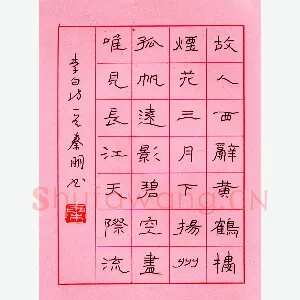 故人西辭黄鶴樓
煙花三月下揚州
孤帆遠影碧空盡
唯見長江天際流
李白诗一首秦明书
Shufawang.CN